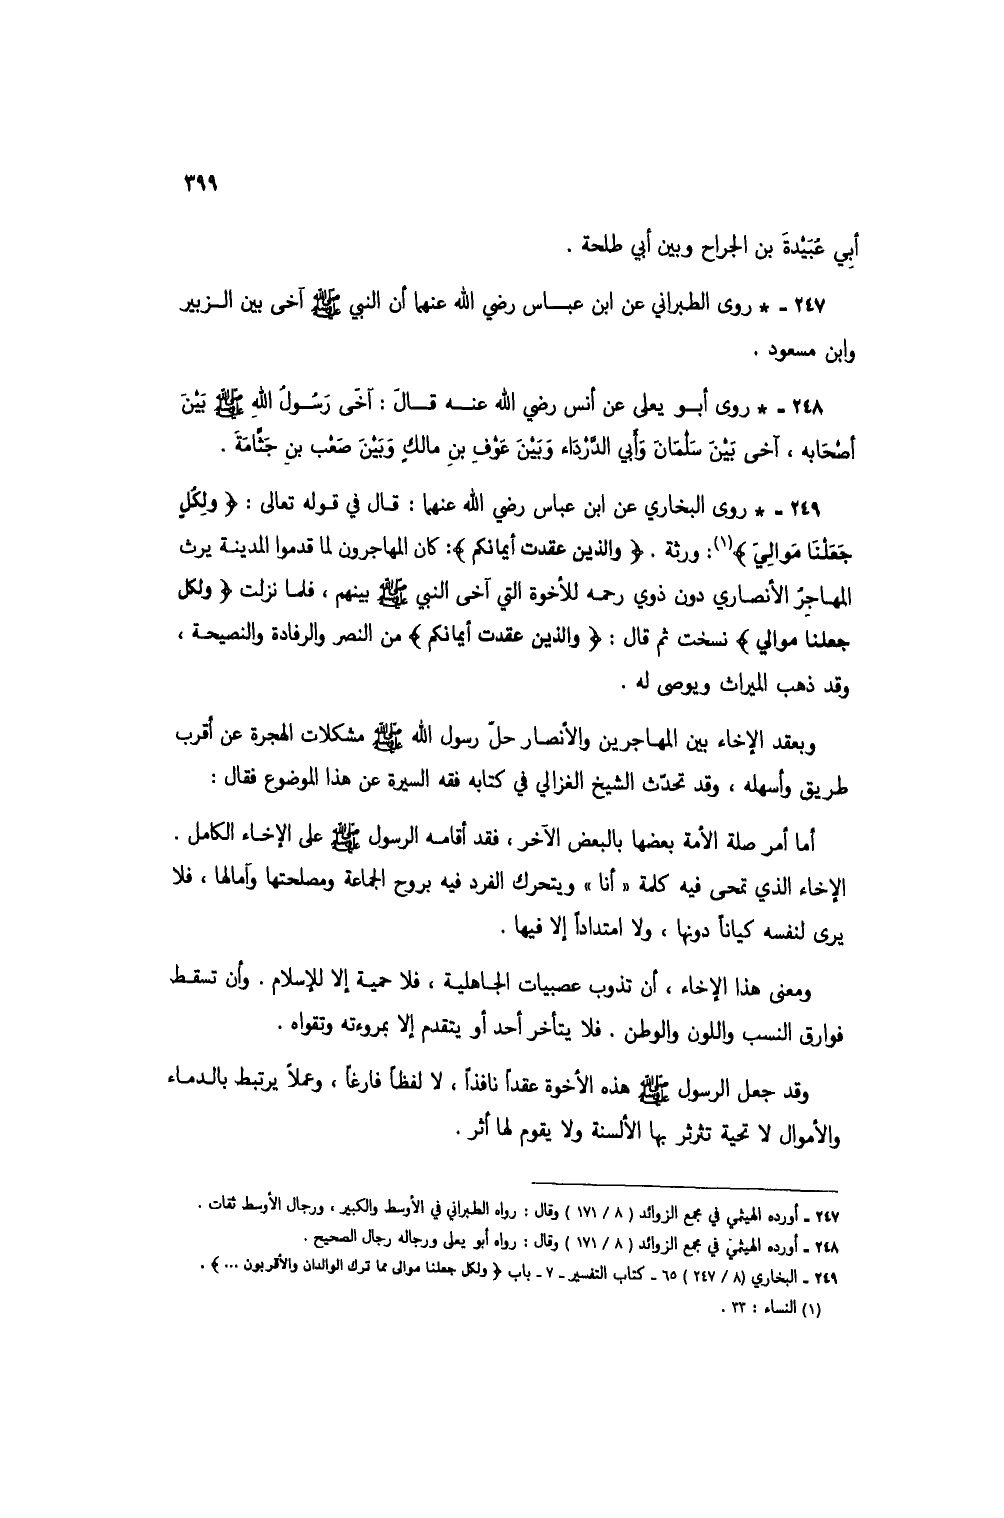 ٣٩٩
أبِي عُبَيْدةَ بن الجراح وبين أبي طلحة .
٢٤٧ - * روى الطبراني عن ابن عبـــاس رضي الله عنهما أن النبي ﷺ آخى بين الـزبير
وابن مسعود .
٢٤٨ - * روى أبـو يعلى عن أنس رضي الله عنـه قـالَ : آخَى رَسُـولُ اللهِ ﷺ بَيْنَ
أصْحَابه ، آخى بَيْنَ سَلْمَانَ وَأَبي الدَّرْدَاء وَبَيْنَ عَوْفِ بنِ مالكٍ وَبَيْنَ صَعْب بنِ جَثَّامَةَ .
٢٤٩ - * روى البخاري عن ابن عباس رضي الله عنهما : قـال في قـوله تعالى : ﴿ ولِكُلٍ
جَعَلْنَا مَوالِيَ ﴾(١): ورثة . ﴿ والذين عقدت أيمانكم ﴾: كان المهاجرون لما قدموا المدينـة يرث
المهـاجِرُ الأنصـاري دون ذوي رحمـه للأخوة التي آخى النبي ﷺ بينهم ، فلمـا نزلت ﴿ ولكل
جعلنـا موالي ﴾ نسخت ثم قال : ﴿ والذين عقدت أيمانكم ﴾ من النصر والرفادة والنصيحـة ،
وقد ذهب الميراث ويوصى له .
وبعقد الإخاء بين المهـاجرين والأنصـار حلّ رسول الله ﷺ مشكلات الهجرة عن أقرب
طريق وأسهله ، وقد تحدّث الشيخ الغزالي في كتابه فقه السيرة عن هذا الموضوع فقال :
أما أمر صلة الأمة بعضها بالبعض الآخر ، فقد أقامـه الرسول ﷺ على الإخـاء الكامل .
الإخاء الذي تمحى فيه كلمة « أنا » ويتحرك الفرد فيه بروح الجماعة ومصلحتها وآمالها ، فلا
يرى لنفسه كياناً دونها ، ولا امتداداً إلا فيها .
ومعنى هذا الإخاء ، أن تذوب عصبيات الجـاهليـة ، فلا حميـة إلا للإسلام . وأن تسقـط
فوارق النسب واللون والوطن . فلا يتأخر أحد أو يتقدم إلا بمروءته وتقواه .
وقد جعل الرسول ﷺ هذه الأخوة عقداً نافذاً ، لا لفظاً فارغاً ، وعملاً يرتبط بالـدمـاء
والأموال لا تحية تثرثر بها الألسنة ولا يقوم لها أثر .
٢٤٧ - أورده الهيثمي في مجمع الزوائد ( ٨ / ١٧١ ) وقال : رواه الطبراني في الأوسط والكبير ، ورجال الأوسط ثقات .
٢٤٨ - أورده الهيثمي في مجمع الزوائد ( ٨ / ١٧١ ) وقال : رواه أبو يعلى ورجاله رجال الصحيح .
٢٤٩ - البخاري (٨ / ٢٤٧ ) ٦٥ - كتاب التفسير - ٧ - باب ﴿ ولكل جعلنا موالى مما ترك الوالدان والأقربون ... ﴾ .
(١) النساء : ٣٣ .